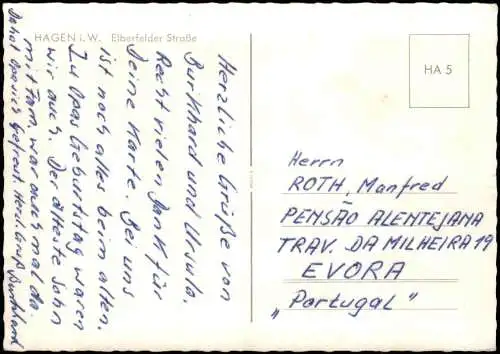 HAGEN i. W. Elberfelder Straße
HA 5
Herzliche Grüße von
Burkhard und Ursula.
Recht vielen Dank für
Deine Karte. Bei uns
ist noch alles beim alten.
Zu Opas Geburtstag waren
wir auch. Der älteste Sohn
mit Fam. war auch mal da.
Da hat Opa sich gefreut. Herzl. Gruß Burkhard
Herrn
ROTH, Manfred
PENSÃO ALENTEJANA
TRAV. DA MILHEIRA 19
EVORA
"Portugal"